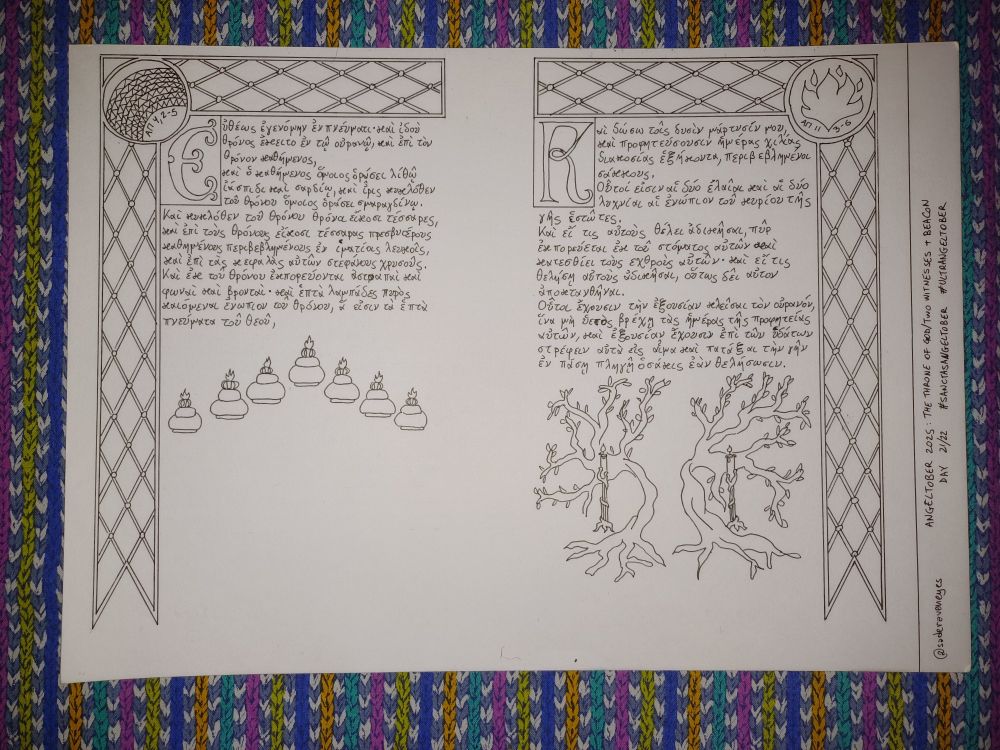 ΑΠ 4,2-5
Εὐθέως ἐγενόμην ἐν πνεύματι· καὶ ἰδοὺ
θρόνος ἔκειτο ἐν τῷ οὐρανῷ, καὶ ἐπὶ τὸν
θρόνον καθήμενος,
καὶ ὁ καθήμενος ὅμοιος ὁράσει λίθῳ
ἰάσπιδι καὶ σαρδίῳ, καὶ ἶρις κυκλόθεν
τοῦ θρόνου ὅμοιος ὁράσει σμαραγδίνῳ.
Καὶ κυκλόθεν τοῦ θρόνου θρόνοι εἴκοσι τέσσαρες,
καὶ ἐπὶ τοὺς θρόνους εἴκοσι τέσσαρας πρεσβυτέρους
καθημένους περιβεβλημένους ἐν ἱματίοις λευκοῖς,
καὶ ἐπὶ τὰς κεφαλὰς αὐτῶν στεφάνους χρυσοῦς.
Καὶ ἐκ τοῦ θρόνου ἐκπορεύονται ἀστραπαὶ καὶ
φωναὶ καὶ βρονταί· καὶ ἑπτὰ λαμπάδες πυρὸς
καιόμεναι ἐνώπιον τοῦ θρόνου, ἅ εἰσιν τὰ ἑπτὰ
πνεύματα τοῦ θεοῦ,
ΑΠ 11
3-6
Καὶ δώσω τοῖς δυσὶν μάρτυσίν μου,
καὶ προφητεύσουσιν ἡμέρας χιλίας
διακοσίας ἑξήκοντα, περιβεβλημένοι
σάκκους.
Οὗτοί εἰσιν αἱ δύο ἐλαῖαι καὶ αἱ δύο
λυχνίαι αἱ ἐνώπιον τοῦ κυρίου τῆς
γῆς ἑστῶτες.
Καὶ εἴ τις αὐτοὺς θέλει ἀδικῆσαι, πῦρ
ἐκπορεύεται ἐκ τοῦ στόματος αὐτῶν καὶ
κατεσθίει τοὺς ἐχθροὺς αὐτῶν· καὶ εἴ τις
θελήσῃ αὐτοὺς ἀδικῆσαι, οὕτως δεῖ αὐτὸν
ἀποκτανθῆναι.
Οὗτοι ἔχουσιν τὴν ἐξουσίαν κλεῖσαι τὸν οὐρανόν,
ἵνα μὴ ὑετὸς βρέχῃ τὰς ἡμέρας τῆς προφητείας
αὐτῶν, καὶ ἐξουσίαν ἔχουσιν ἐπὶ τῶν ὑδάτων
στρέφειν αὐτὰ εἰς αἷμα καὶ πατάξαι τὴν γῆν
ἐν πάσῃ πληγῇ ὁσάκις ἐὰν θελήσωσιν.
ANGELTOBER 2025: THE THRONE OF GOD/TWO WITNESSES + BEACON
DAY 21/22 #SANCTASANGELTOBER #ULTRANGELTOBER
@saderaveneyes